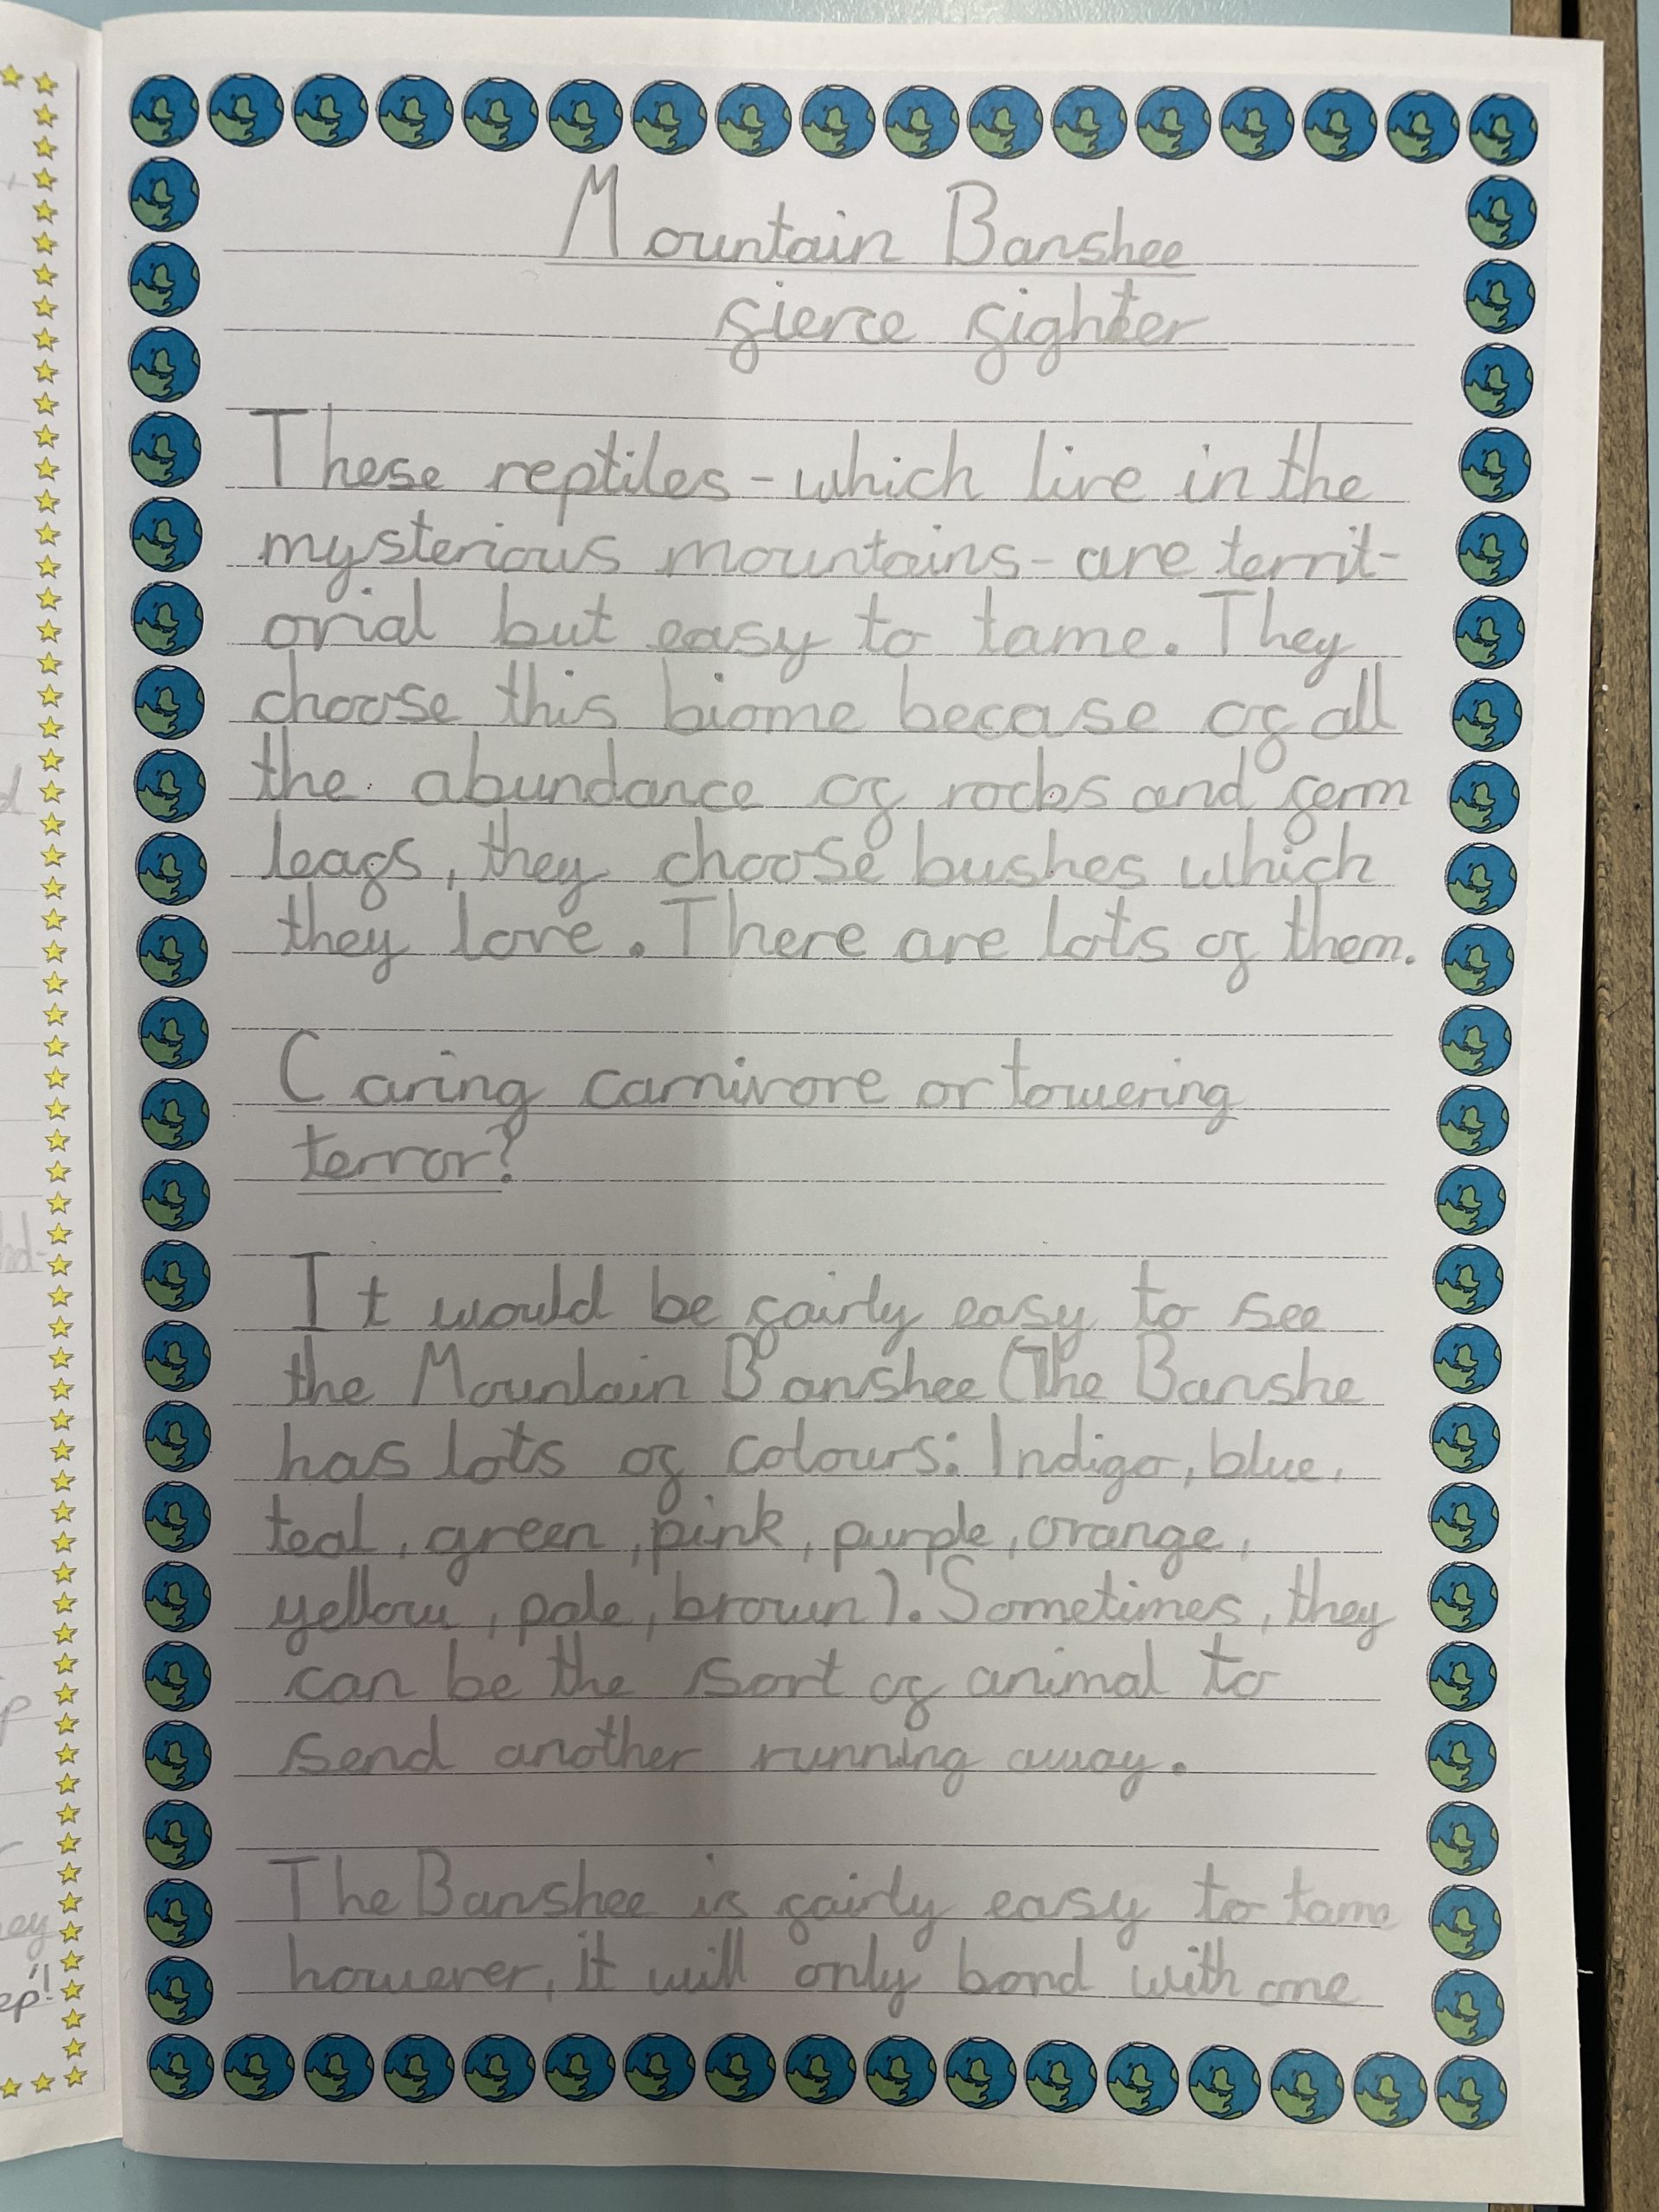 Mountain Banshee
fierce fighter
These reptiles - which live in the
mysterious mountains - are territ-
orial but easy to tame. They
choose this biome becase of all
the abundance of rocks and fern
leafs, they choose bushes which
they love. There are lots of them.
Caring carnivore or towering
terror?
It would be fairly easy to see
the Mountain Banshee (The Banshe
has lots of colours: Indigo, blue,
teal, green, pink, purple, orange,
yellow, pale, brown). Sometimes, they
can be the sort of animal to
send another running away.
The Banshee is fairly easy to tame
however, it will only bond with one